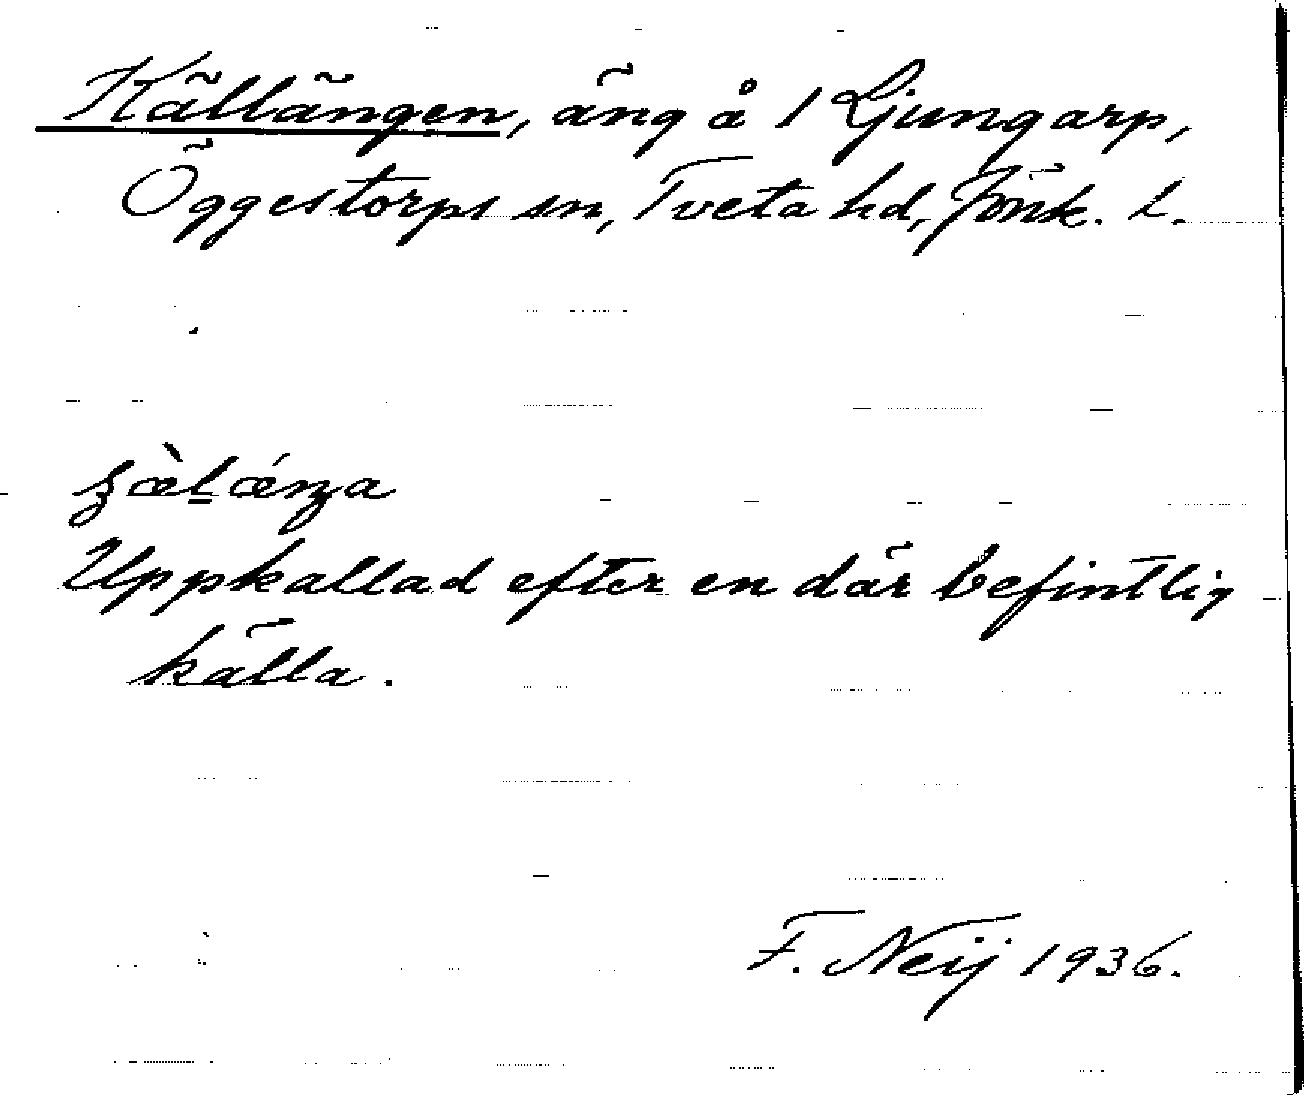 Källängen, äng å 1 Ljungarp,
Öggestorps sn, Tveta hd, Jönk. L.
Uppkallad efter en där befintlig
källa.
F. Neij 1936.